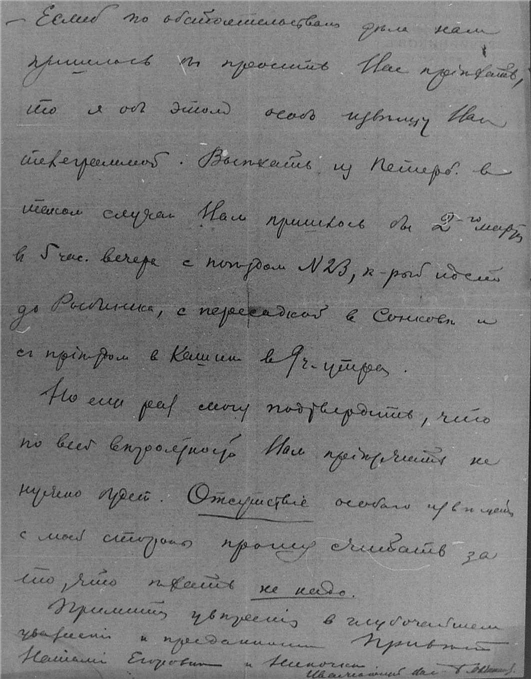 — Еслиб по обстоятельствам дела нам
пришлось бы просить Вас пріѣхать,
то я объ этом особо извѣщу Вас
телеграммой. Выѣхать из Петерб. в
таком случаѣ Вам пришлось бы 2го марта
в 5 час. вечера с поѣздом N 23, к-рый идет
до Рыбинска, с пересадкой в Сонковѣ и
с пріѣздом в Кашин в 9 ч. утра.
Но еще раз могу подтвердить, что
по всей вѣроятности Вам пріѣзжать не
нужно будет. Отсутствіе особаго извѣщенія
с моей стороны прошу считать за
то, что ѣхать не надо.
Примите увѣреніе в глубочайшем
уваженіи и преданности Привѣт
Наталіи Егоровнѣ и Ниночкѣ
Уважающій Вас